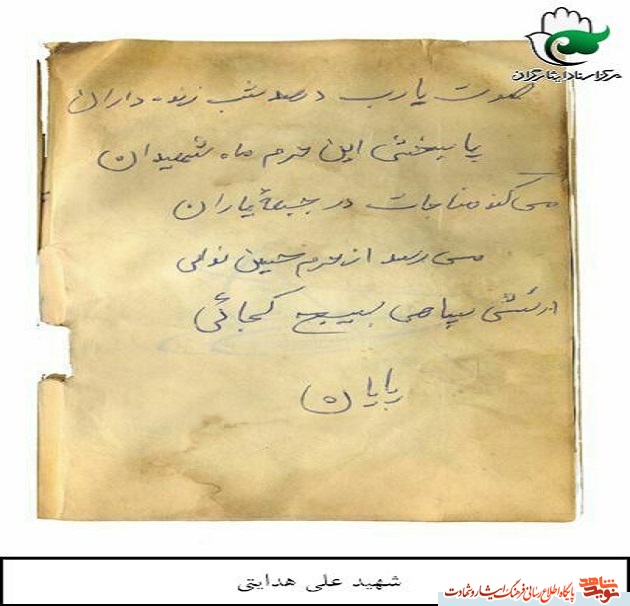 مرکز اسناد ایثارگران
صوت یا رب در صد شب زنده داران
پا ببخشی این حرم ماه شهیدان
می کند مناجات در جبهه یاران
می رسد از حرم حسین نوای
ارتشی سپاهی بسیج کجائی
پایان
شهید علی هدایتی
نوید شاهد
پایگاه اطلاع رسانی فرهنگ ایثار و شهادت